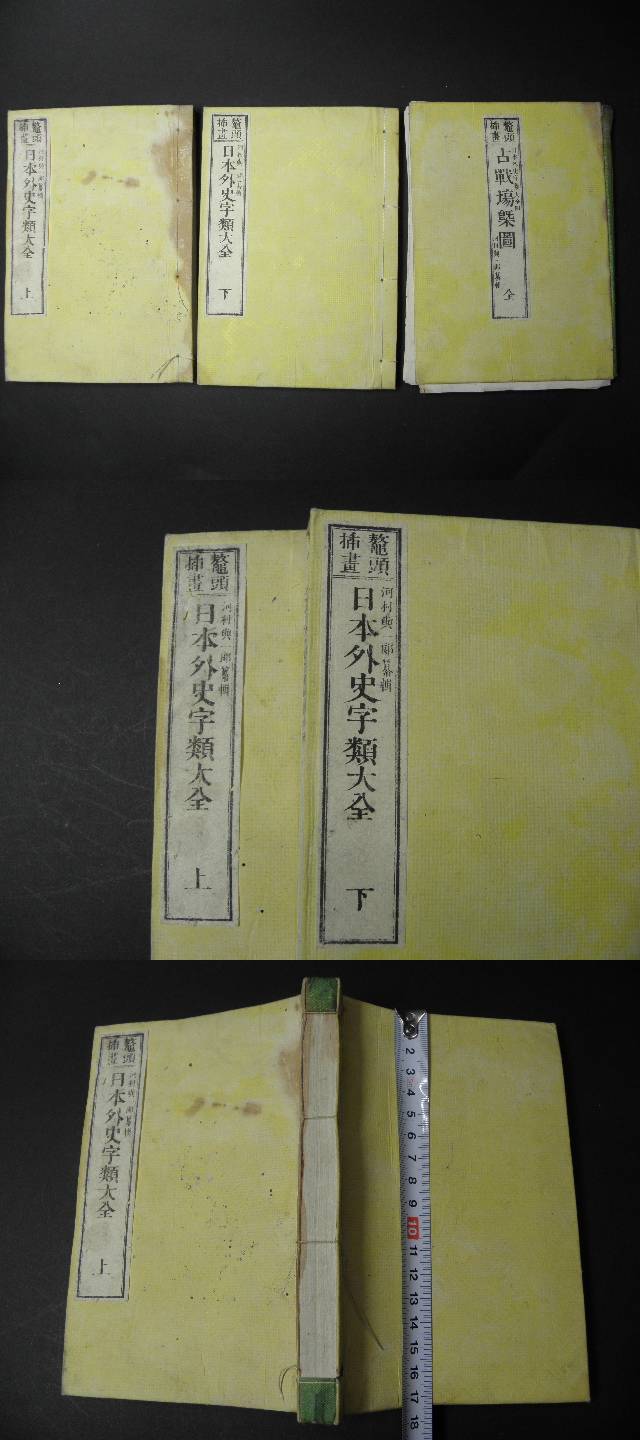 鼇頭
挿畫
河村與一郎纂輯
日本外史字類大全
上
鼇頭
挿畫
河村與一郎纂輯
日本外史字類大全
下
鼇頭
挿畫
古戰場槩圖
全
鼇頭
挿畫
河村與一郎纂輯
日本外史字類大全
上
鼇頭
挿畫
河村與一郎纂輯
日本外史字類大全
下
鼇頭
挿畫
河村與一郎纂輯
日本外史字類大全
上
2
3
4
5
6
7
8
9
10
11
12
13
14
15
16
17
18